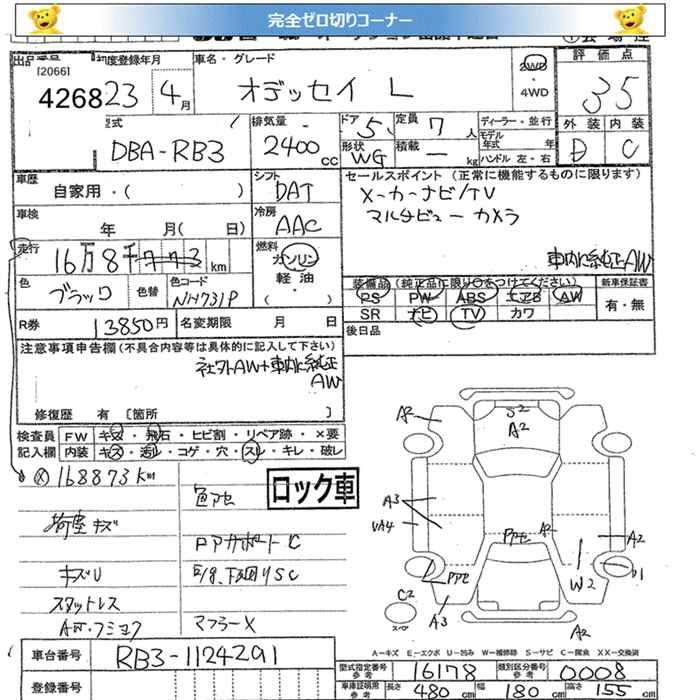 完全ゼロ切りコーナー
[2066]
初度登録年月
車名・グレード
評価点
4268
23 4月
オデッセイ L
2WD
・
4WD
35
型式
DBA-RB3
排気量
2400 cc
ドア 5
定員 7 人
形状 WG
積載 — kg
ディーラー・並行
モデル年式 年式
ハンドル 左・右
外装 内装
D C
車歴
自家用・( )
シフト
DAT
セールスポイント (正常に機能するものに限ります)
メーカーナビ/TV
マルチビューカメラ
車内に純正AW
車検
年 月( 日)
冷房
AAC
走行
16万8千773 km
燃料
ガソリン
軽油
・( )
色
ブラック
色替
色コード
NH731P
装備品 (純正品に限り○をつけてください)
新車保証書
PS PW ABS エアB AW
SR ナビ TV カワ
有・無
R券
13850円
名変期限 月 日
後日品
注意事項申告欄 (不具合内容等は具体的に記入して下さい)
社外AW+車内に純正
AW
修復歴 有 [箇所 ]
検査員 FW キズ・飛石・ヒビ割・リペア跡・×要
記入欄 内装 キズ・汚レ・コゲ・穴・スレ・キレ・破レ
168873km
色アセ
ロック車
荷室キズ
PPサポートC
キズU
E/g、下回りSC
スタットレス
マフラーX
A2
S2
A2
A3
UA4
PPアセ
A2
A2
W2
U1
PPアセ
C2
スペア
A3
A2
A-キズ E-エクボ U-凹み W-補修跡 S-サビ C-腐食 XX-交換済
車台番号
RB3-1124291
型式指定番号 参考 16178
類別区分番号 参考 0008
登録番号
車庫証明用 参考 長さ 480 cm 幅 180 cm 高さ 155 cm